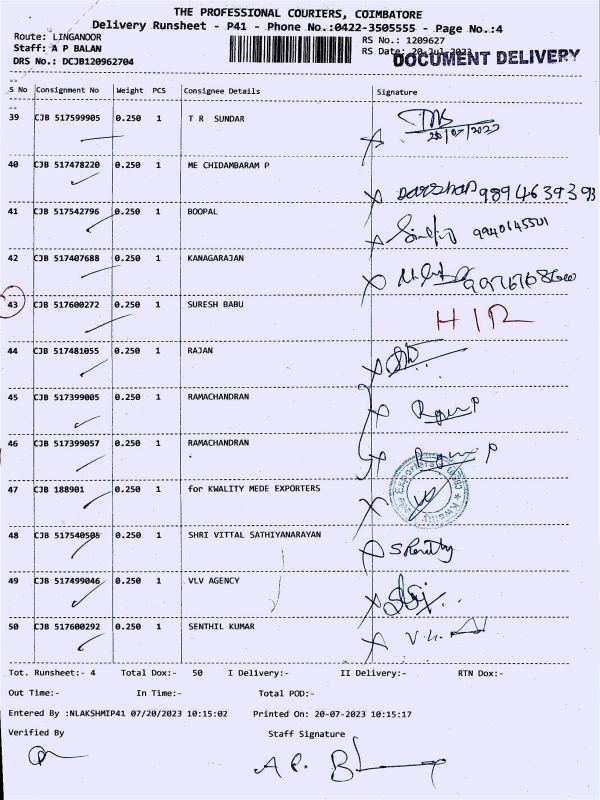 THE PROFESSIONAL COURIERS, COIMBATORE
Delivery Runsheet - P41 - Phone No.:0422-3505555 - Page No.:4
Route: LINGANOOR RS No.: 1209627
Staff: A P BALAN RS Date: 20-Jul-2023
DOCUMENT DELIVERY
DRS No.: DCJB120962704
S No Consignment No Weight PCS Consignee Details Signature
39 CJB 517599905 0.250 1 T R SUNDAR
20/07/2023
40 CJB 517478220 0.250 1 ME CHIDAMBARAM P
DARSHAN 9894639393
41 CJB 517542796 0.250 1 BOOPAL
9940145501
42 CJB 517407688 0.250 1 KANAGARAJAN
43 CJB 517600272 0.250 1 SURESH BABU
HIR
44 CJB 517481055 0.250 1 RAJAN
45 CJB 517399005 0.250 1 RAMACHANDRAN
46 CJB 517399057 0.250 1 RAMACHANDRAN
47 CJB 188901 0.250 1 for KWALITY MEDE EXPORTERS
48 CJB 517540505 0.250 1 SHRI VITTAL SATHIYANARAYAN
49 CJB 517499046 0.250 1 VLV AGENCY
50 CJB 517600292 0.250 1 SENTHIL KUMAR
Tot. Runsheet:- 4 Total Dox:- 50 I Delivery:- II Delivery:- RTN Dox:-
Out Time:- In Time:- Total POD:-
Entered By :NLAKSHMIP41 07/20/2023 10:15:02 Printed On: 20-07-2023 10:15:17
Verified By Staff Signature
A P. B